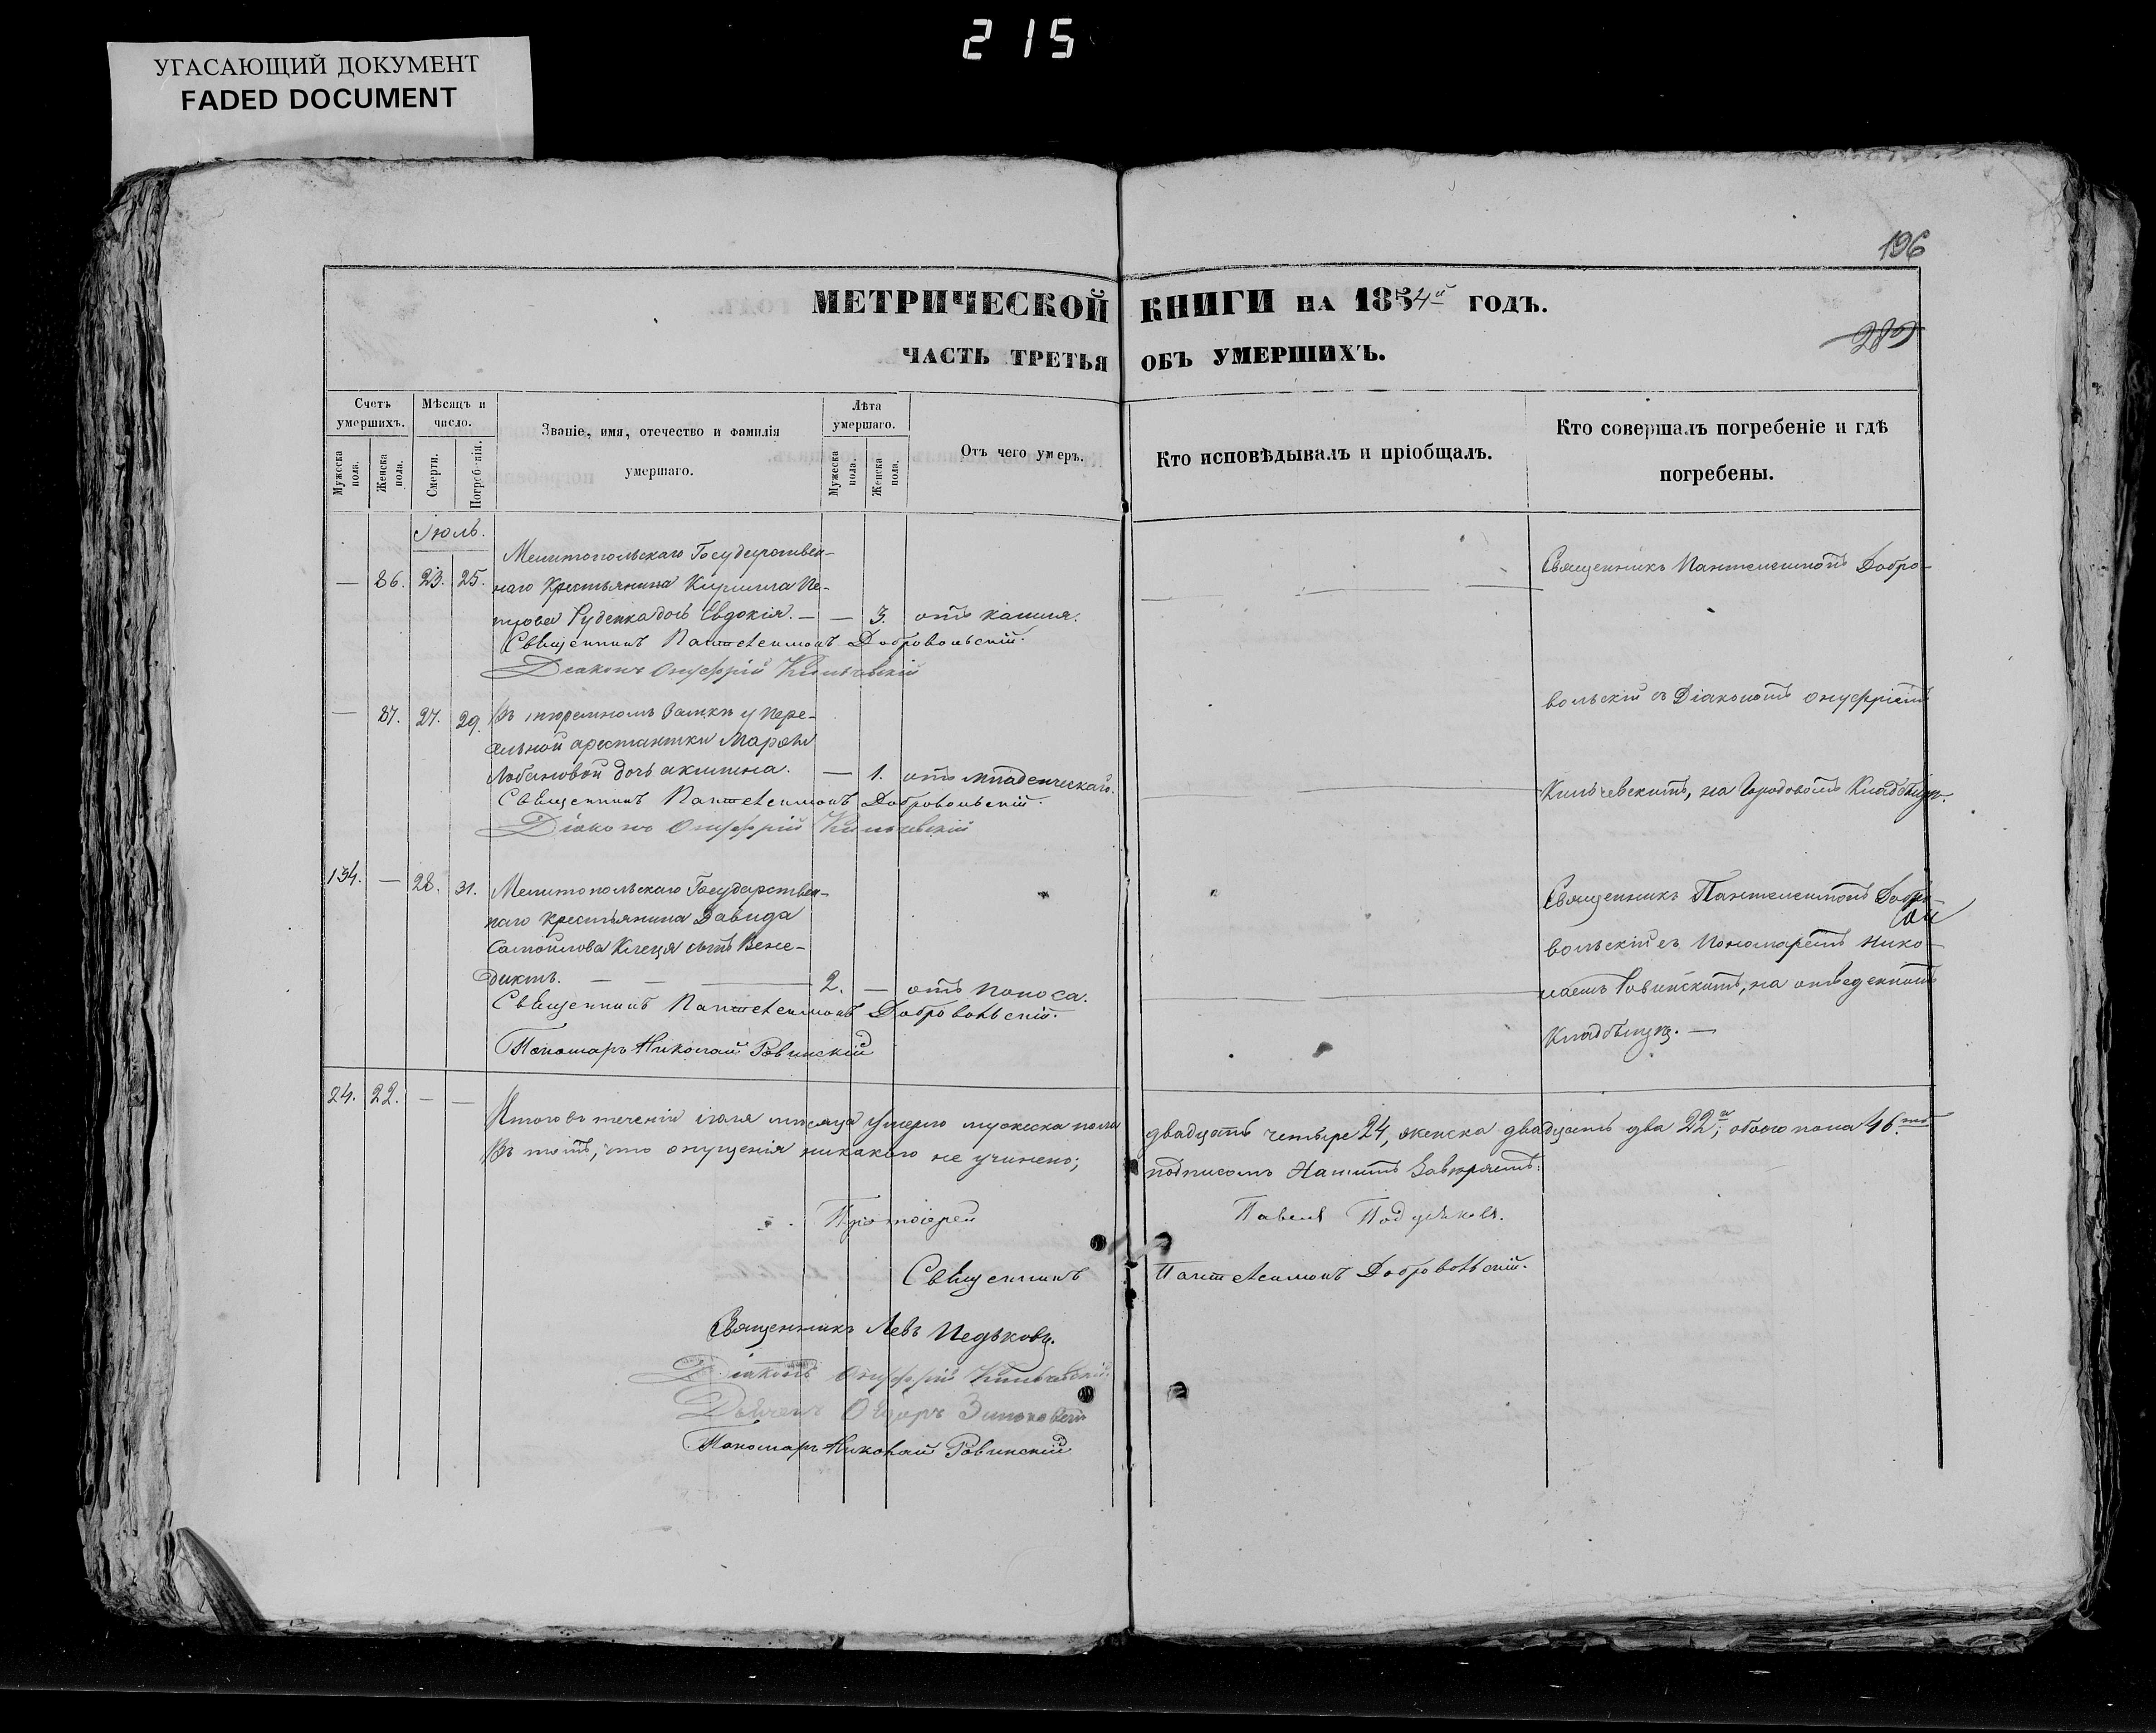 215
УГАСАЮЩИЙ ДОКУМЕНТ
FADED DOCUMENT
196
МЕТРИЧЕСКОЙ КНИГИ НА 1854й ГОДЪ.
289
ЧАСТЬ ТРЕТЬЯ ОБЪ УМЕРШИХЪ.
Счетъ умершихъ.
Мужеска пола.
Женска пола.
Мѣсяцъ и число.
Смерти.
Погребенія.
Званіе, имя, отечество и фамилія умершаго.
Лѣта умершаго.
Мужеска пола.
Женска пола.
Отъ чего умеръ.
Кто исповѣдывалъ и пріобщалъ.
Кто совершалъ погребеніе и гдѣ погребены.
Іюль.
Мелитопольскаго Государствен-
— 86. 23. 25. наго Крестьянина Кирилла Пе-
трова Руденка дочь Евдокія. — — 3. отъ кашля.
Священникъ Пантелеимонъ Добровольскій.
Діаконъ Онуфрій Кильчевскій
Священникъ Пантелеимонъ Добро-
вольскій съ Діакономъ Онуфріемъ
Кильчевскимъ, на Городовомъ Кладбищѣ.
— 87. 27. 29. Въ тюремномъ Замкѣ у Пере-
сыльной арестантки Марѳы
Лобановой дочь Акилина. — 1. отъ младенческаго.
Священникъ Пантелеимонъ Добровольскій.
Діаконъ Онуфрій Кильчевскій
134. — 28. 31. Мелитопольскаго Государствен-
наго крестьянина Давида
Самойлова Клеця сынъ Вене-
диктъ. — — — 2. — отъ поноса.
Священникъ Пантелеимонъ Добровольскій.
Пономарь Николай Ровинскій
Священникъ Пантелеимонъ Добро-
вольскій съ Пономаремъ Нико-
лаемъ Ровинскимъ, на отведенномъ
Кладбищѣ. —
24. 22. — — Итого въ теченіи іюля мѣсяца умерло мужеска пола двадцать четыре 24, женска двадцать два 22, обоего пола 46.
Въ томъ, что опущенія никакого не учинено; подписомъ Нашимъ Завѣряемъ:
Протоіерей Павелъ
Священникъ Пантелеимонъ Добровольскій.
Священникъ Левъ
Діаконъ Онуфрій Кильчевскій
Дьячекъ Ѳедоръ
Пономарь Николай Ровинскій